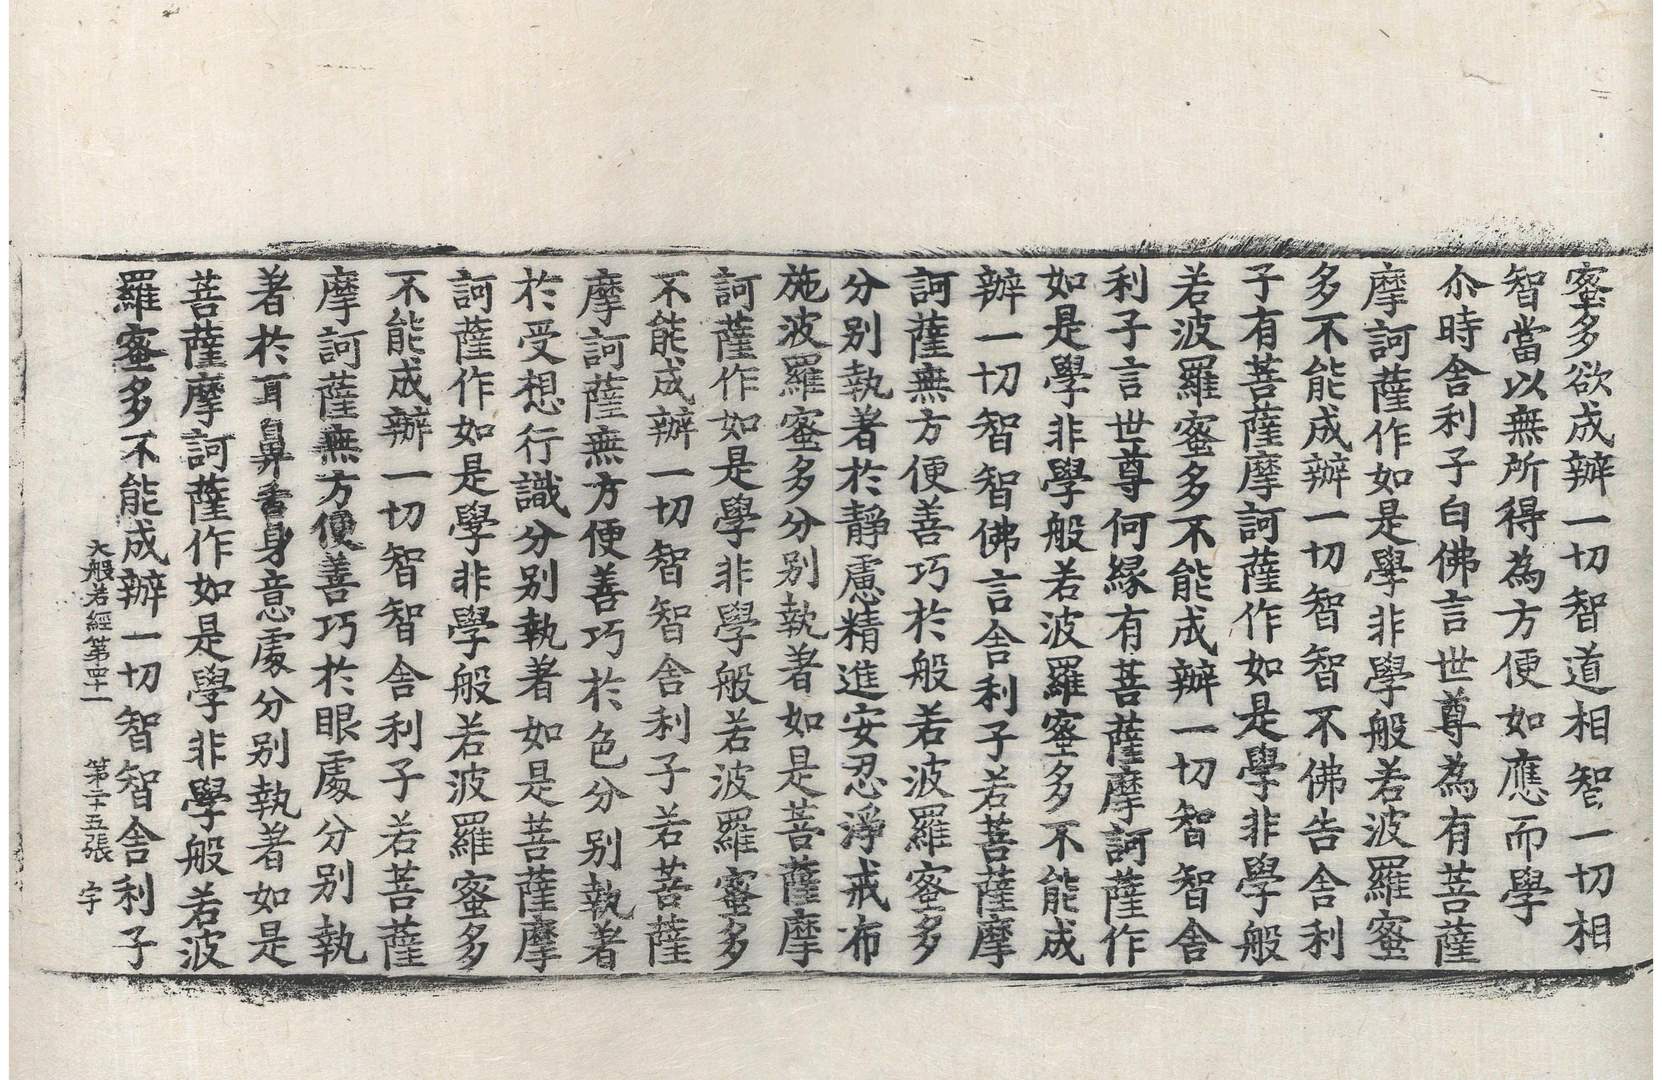 蜜多欲成辦一切智道相智一切相
智當以無所得為方便如應而學
尒時舍利子白佛言世尊為有菩薩
摩訶薩作如是學非學般若波羅蜜
多不能成辦一切智智不佛告舍利
子有菩薩摩訶薩作如是學非學般
若波羅蜜多不能成辦一切智智舍
利子言世尊何緣有菩薩摩訶薩作
如是學非學般若波羅蜜多不能成
辦一切智智佛言舍利子若菩薩摩
訶薩無方便善巧於般若波羅蜜多
分別執著於靜慮精進安忍淨戒布
施波羅蜜多分別執著如是菩薩摩
訶薩作如是學非學般若波羅蜜多
不能成辦一切智智舍利子若菩薩
摩訶薩無方便善巧於色分別執著
於受想行識分別執著如是菩薩摩
訶薩作如是學非學般若波羅蜜多
不能成辦一切智智舍利子若菩薩
摩訶薩無方便善巧於眼處分別執
著於耳鼻舌身意處分別執著如是
菩薩摩訶薩作如是學非學般若波
羅蜜多不能成辦一切智智舍利子
大般若經第四十一 第二十五張 宇